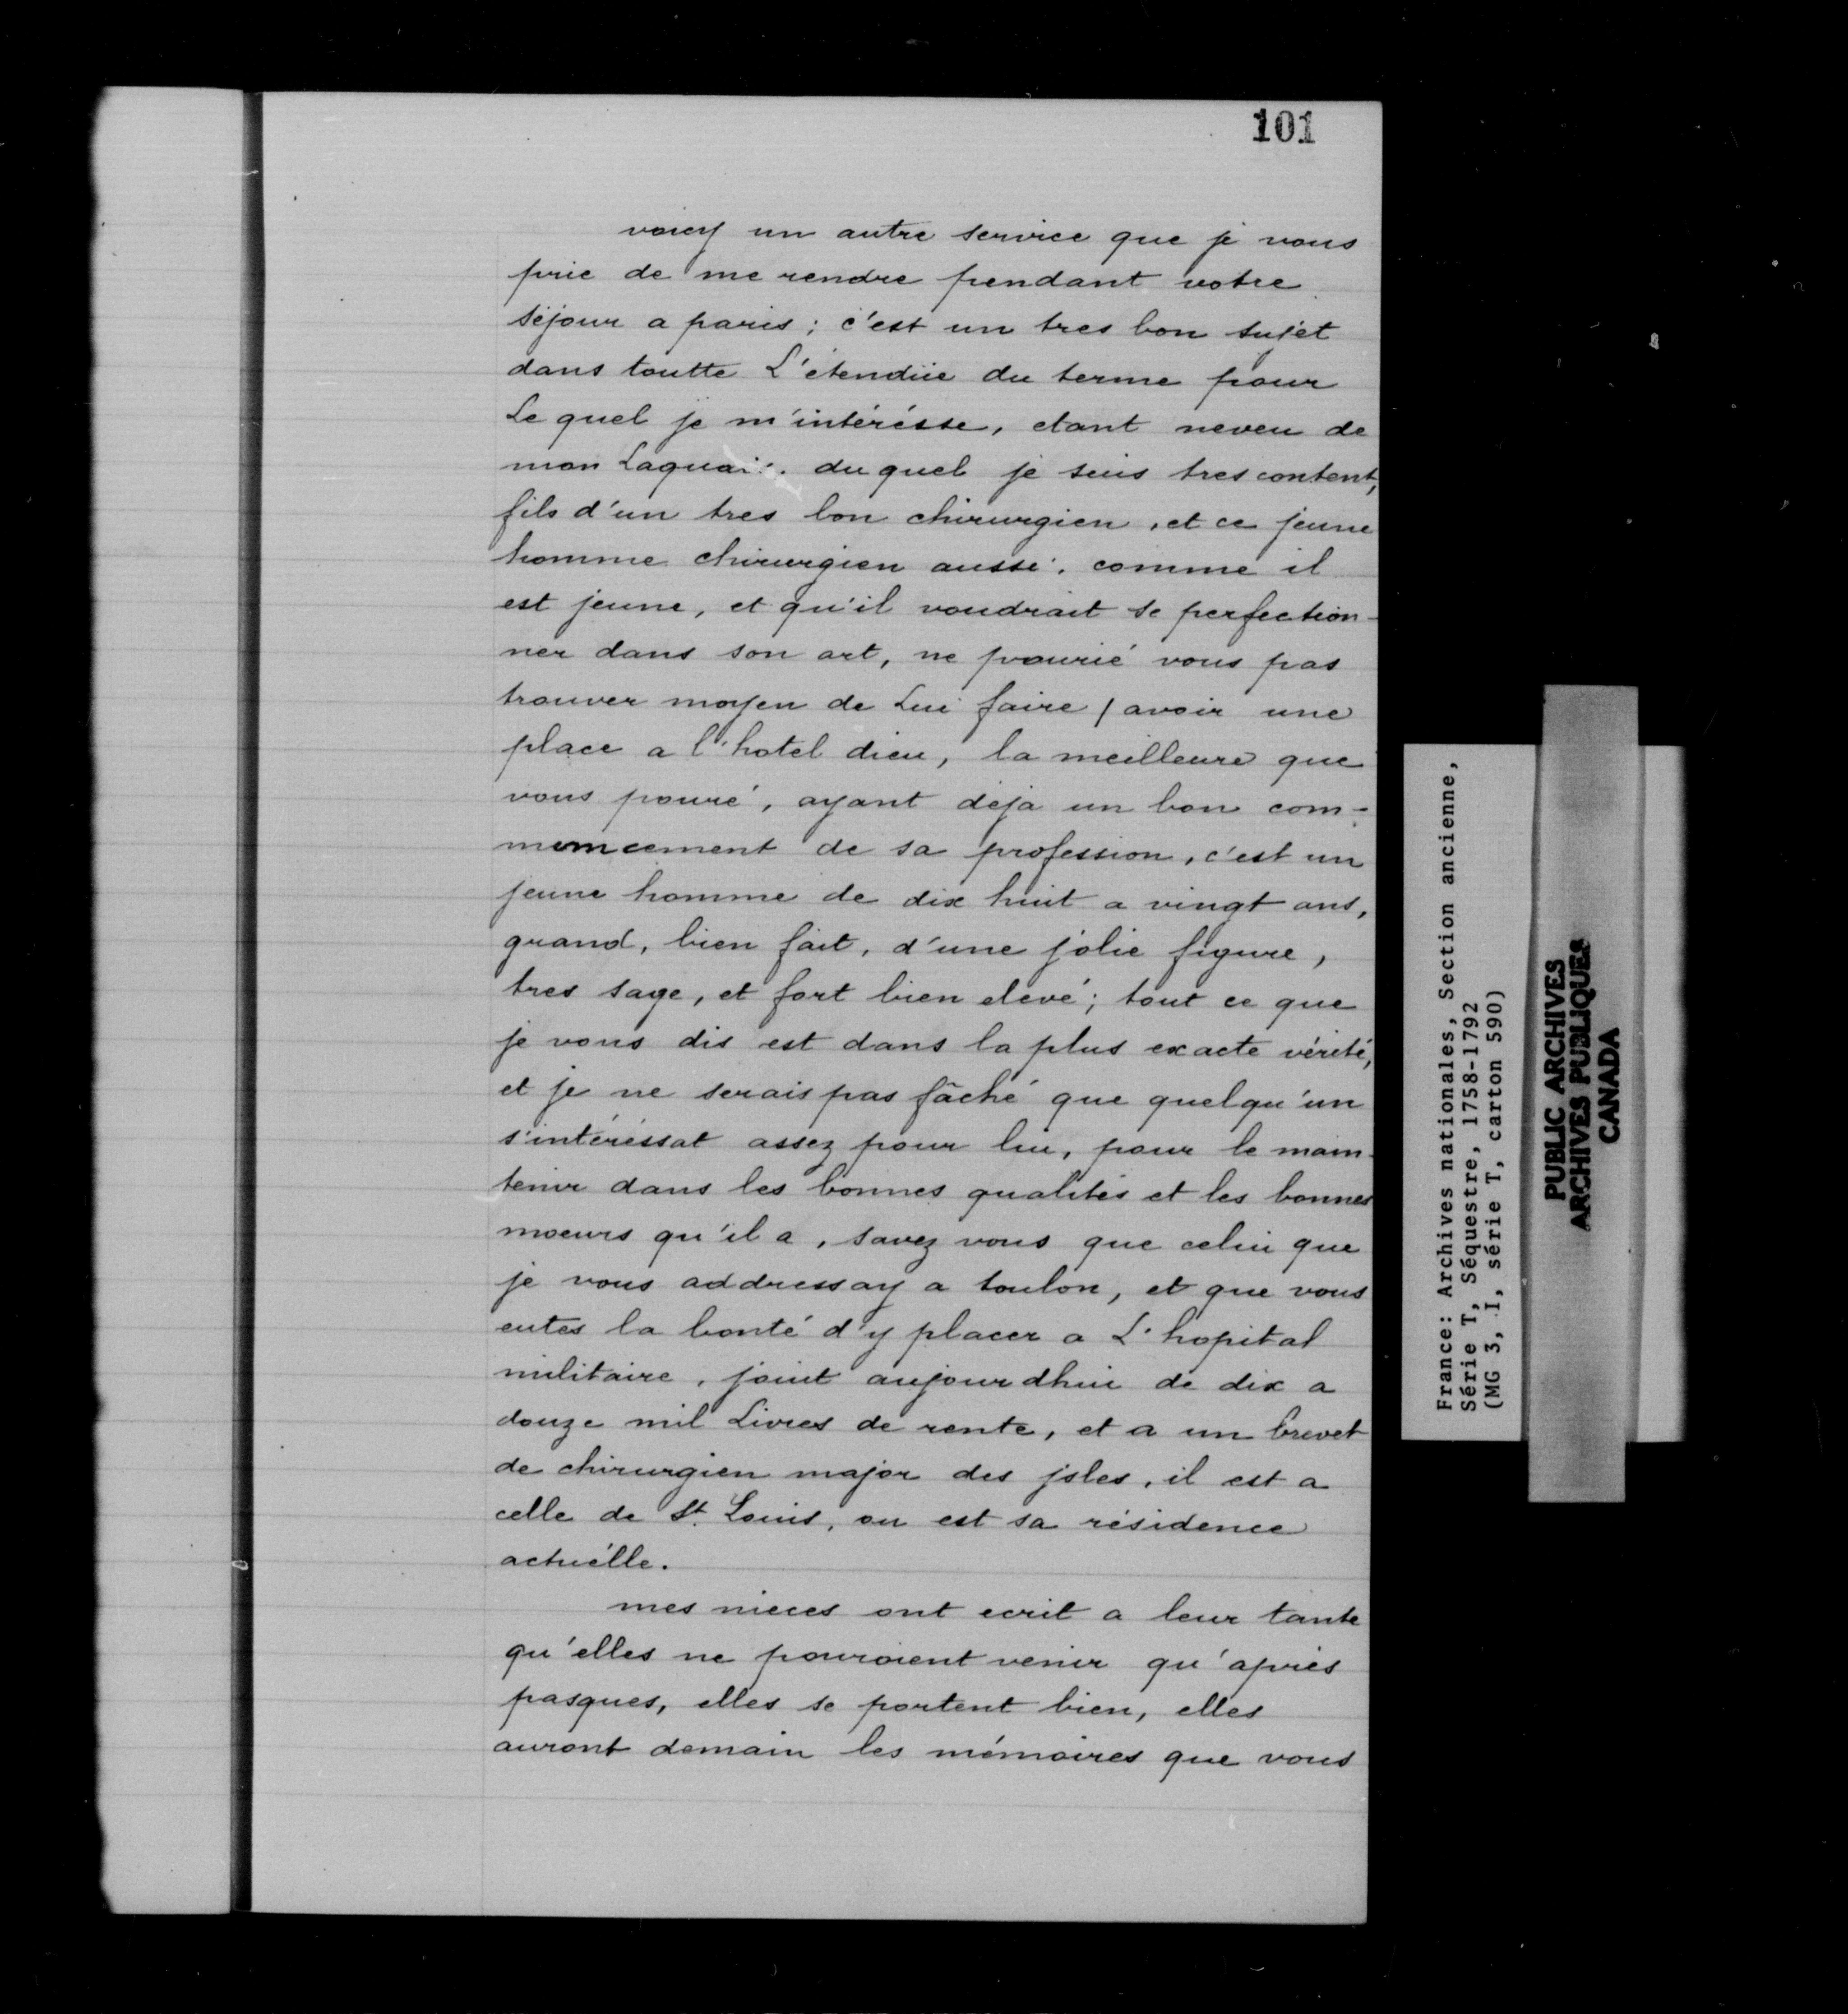 101
voicy un autre service que je vous
prie de me rendre pendant votre
séjour a paris; c'est un tres bon sujet
dans toutte L'étendüe du terme pour
Le quel je m'intérésse, etant neveu de
mon Laquais. du quel je suis tres content,
fils d'un tres bon chirurgien, et ce jeune
homme chirurgien aussi. comme il
est jeune, et qu'il voudrait se perfection-
ner dans son art, ne pourié vous pas
trouver moyen de Lui faire / avoir une
place a l'hotel dieu, la meilleure que
vous pouré, ayant déja un bon com-
mencement de sa profession, c'est un
jeune homme de dix huit a vingt ans,
grand, bien fait, d'une jolie figure,
tres sage, et fort bien elevé; tout ce que
je vous dis est dans la plus exacte vérité,
et je ne serais pas fâché que quelqu'un
s'intéréssat assez pour lui, pour le main-
tenir dans les bonnes qualités et les bonnes
moeurs qu'il a, savez vous que celui que
je vous addressay a toulon, et que vous
eutes la bonté d'y placer a L'hopital
militaire, jouit aujourdhui de dix a
douze mil Livres de rente, et a un brevet
de chirurgien major des jsles, il est a
celle de St. Louis, ou est sa résidence
actuélle.
mes nieces ont ecrit a leur tante
qu'elles ne pouroient venir qu'aprés
pasques, elles se portent bien, elles
auront demain les mémoires que vous
France: Archives nationales, Section ancienne,
Série T, Séquestre, 1758-1792
(MG 3, I, série T, carton 590)
PUBLIC ARCHIVES
ARCHIVES PUBLIQUES
CANADA